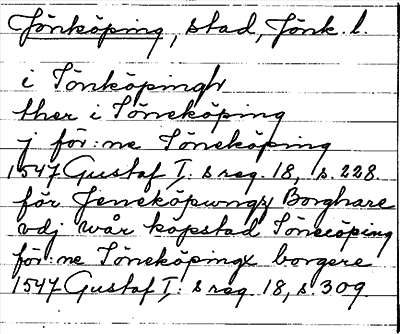 Jönköping, stad, Jönk. l.
i Jönköpingh
ther i Jöneköping
j för:ne Jöneköping
1547 Gustaf I: s reg. 18, s. 228.
för Jeneköpungx Borghare
vdj wår köpstad Jöneciöping
för:ne Jöneköpingx borgere
1547 Gustaf I: s reg. 18, s. 309.